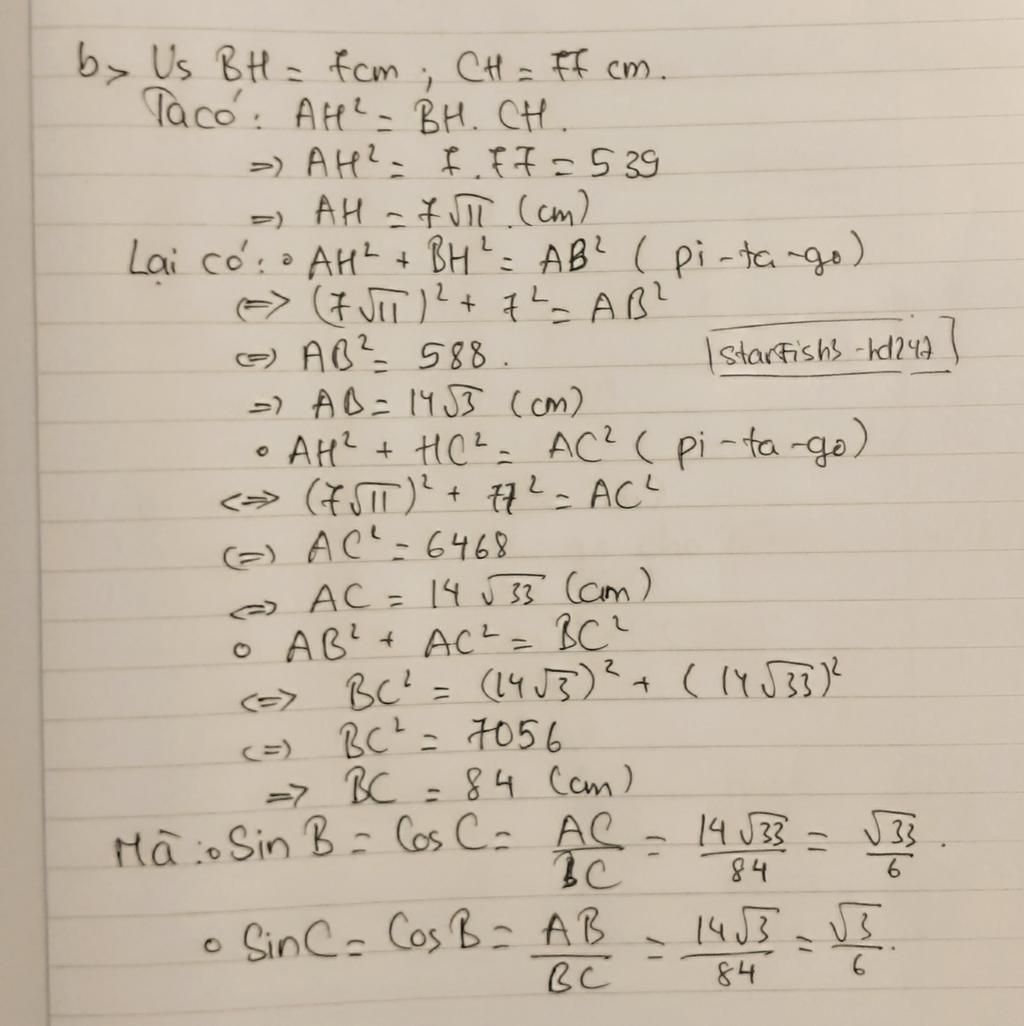 b> Vs BH = 7cm ; CH = 77 cm.
Ta có: AH² = BH. CH.
=> AH² = 7.77 = 539
=> AH = 7√11 (cm)
Lại có: ∘ AH² + BH² = AB² ( pi-ta-go)
<=> (7√11)² + 7² = AB²
<=> AB² = 588.
starFish3 -hd247
=> AB = 14√3 (cm)
∘ AH² + HC² = AC² ( pi-ta-go)
<=> (7√11)² + 77² = AC²
<=> AC² = 6468
<=> AC = 14√33 (cm)
∘ AB² + AC² = BC²
<=> BC² = (14√3)² + (14√33)²
<=> BC² = 7056
=> BC = 84 (cm)
Mà: ∘ Sin B = Cos C = AC/BC = 14√33/84 = √33/6.
∘ Sin C = Cos B = AB/BC = 14√3/84 = √3/6.